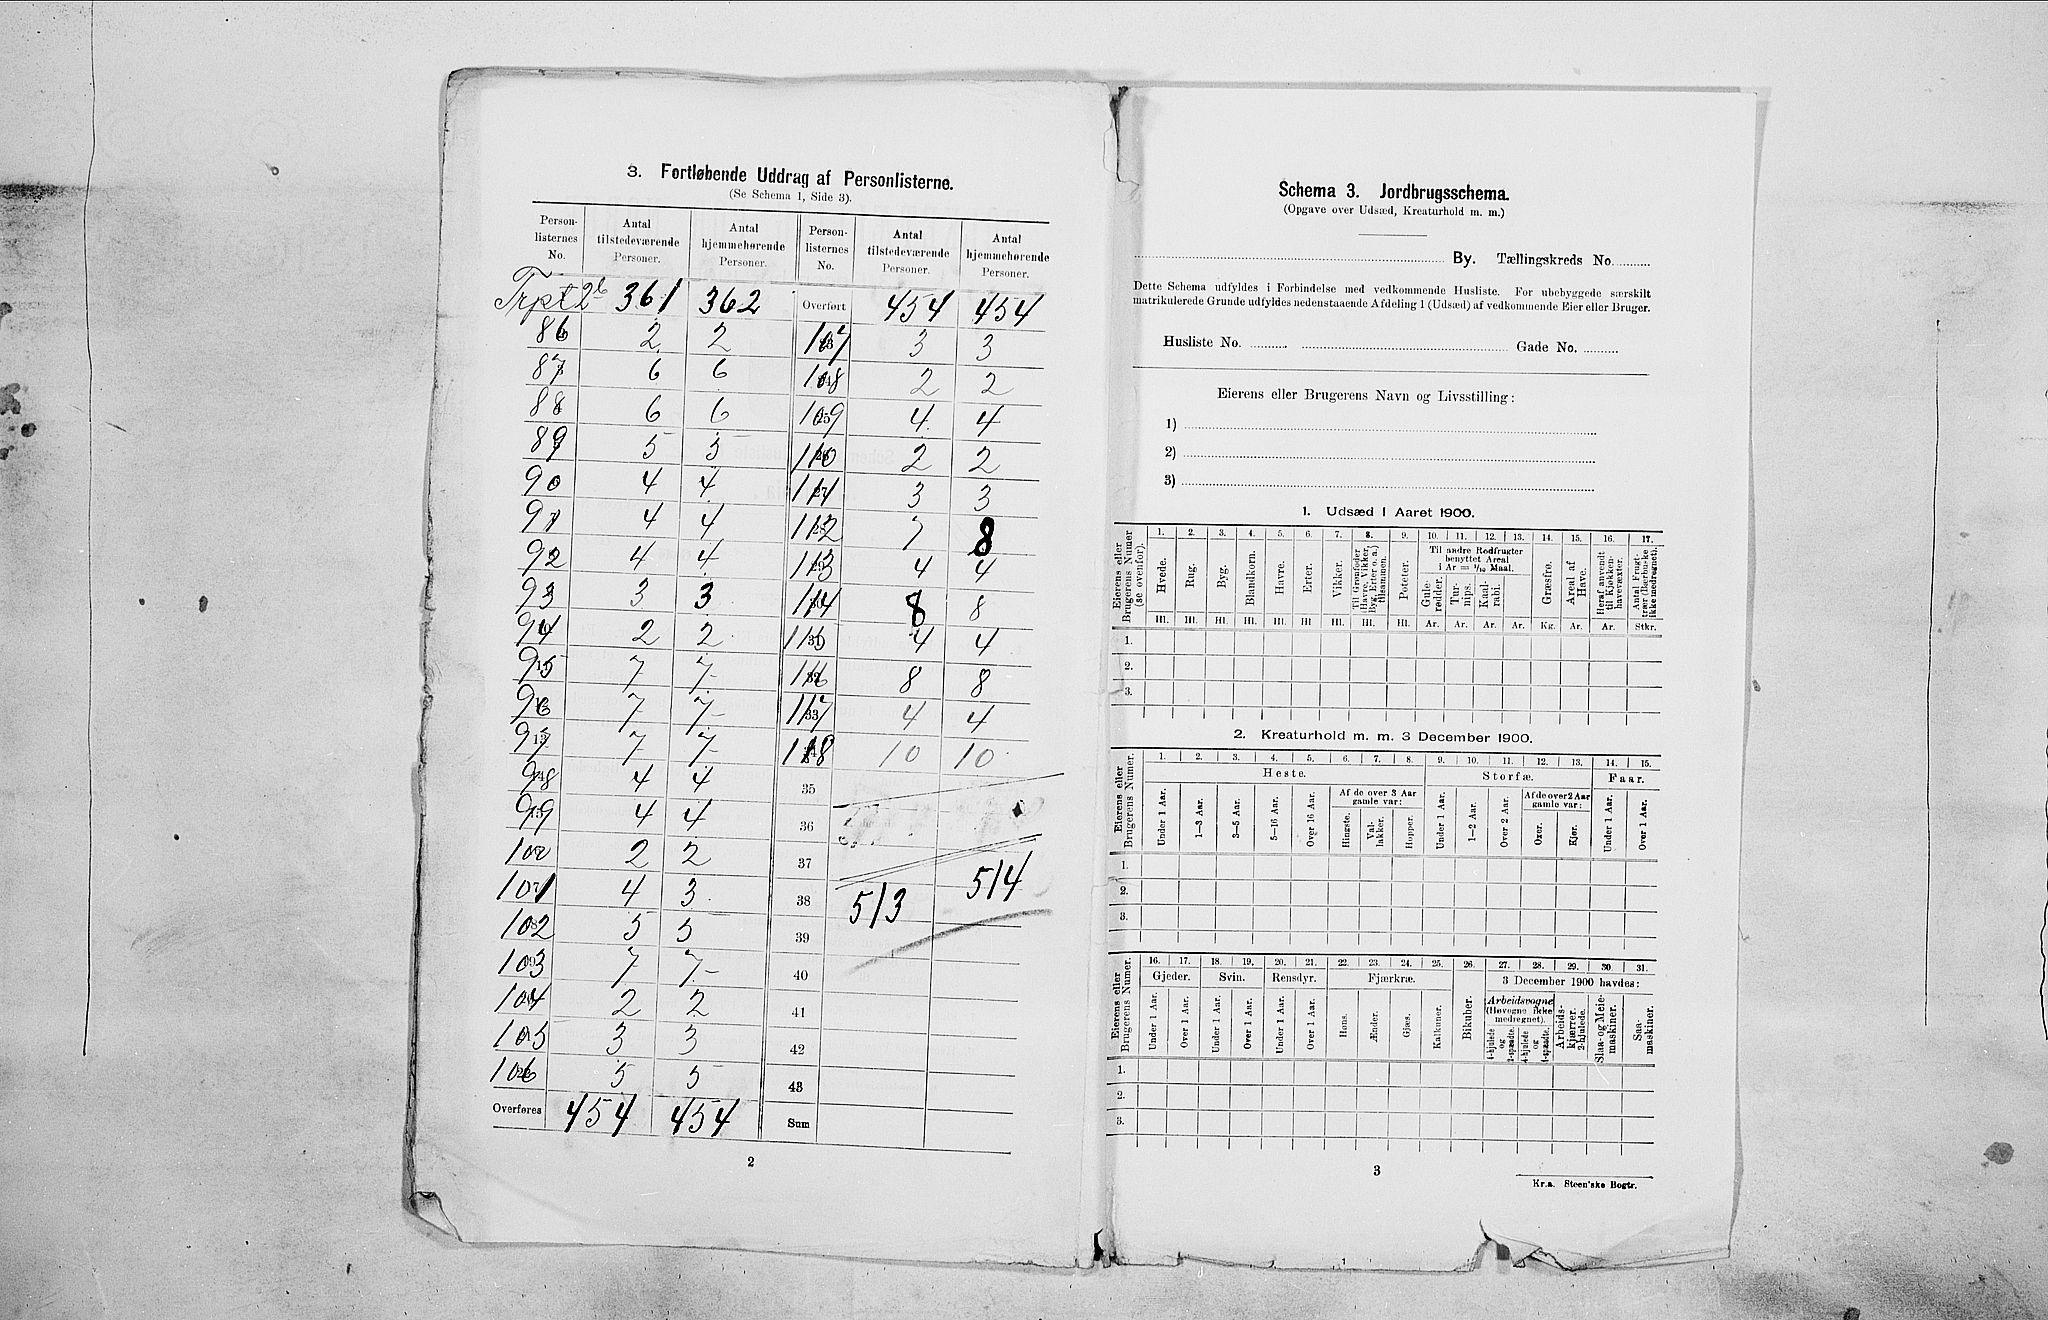 3. Fortløbende Uddrag af Personlisterne.
(Se Schema 1, Side 3).
Person-listernes No. Antal tilstedeværende Personer. Antal hjemmehørende Personer. Person-listernes No. Antal tilstedeværende Personer. Antal hjemmehørende Personer.
361 362 Overført 454 454
86 2 2 107 3 3
87 6 6 108 2 2
88 6 6 109 4 4
89 5 5 110 2 2
90 4 4 111 3 3
91 4 4 112 7 8
92 4 4 113 4 4
93 3 3 114 8 8
94 2 2 115 4 4
95 7 7 116 8 8
96 7 7 117 4 4
97 7 7 118 10 10
98 4 4 35
99 4 4 36
100 2 2 37
101 4 3 38 513 514
102 5 5 39
103 7 7 40
104 2 2 41
105 3 3 42
106 5 5 43
Overføres 454 454 Sum
2
Schema 3. Jordbrugsschema.
(Opgave over Udsæd, Kreaturhold m. m.)
By. Tællingskreds No.
Dette Schema udfyldes i Forbindelse med vedkommende Husliste. For ubebyggede særskilt
matrikulerede Grunde udfyldes nedenstaaende Afdeling 1 (Udsæd) af vedkommende Eier eller Bruger.
Husliste No. Gade No.
Eierens eller Brugerens Navn og Livsstilling:
1)
2)
3)
1. Udsæd i Aaret 1900.
Eierens eller Brugerens Numer (se ovenfor).
1. 2. 3. 4. 5. 6. 7. 8. 9. 10. 11. 12. 13. 14. 15. 16. 17.
Til andre Rodfrugter benyttet Areal i Ar = 1/10 Maal.
Hvede. Rug. Byg. Blandkorn. Havre. Erter. Vikker. Til Grønfoder (Havre, Vikker, Byg, Erter o. a.) tilsammen. Poteter. Gule-rødder. Tur-nips. Kaal-rabi. Græsfrø. Areal af Have. Heraf anvendt til Kjøkken-havevæxter. Antal Frugt-trær (Bærbuske ikke medregnet).
Hl. Hl. Hl. Hl. Hl. Hl Hl. Hl. Hl. Ar. Ar. Ar. Ar. Kg. Ar. Ar. Stkr.
1.
2.
3.
2. Kreaturhold m. m. 3 December 1900.
Eierens eller Brugerens Numer.
1. 2. 3. 4. 5. 6. 7. 8. 9. 10. 11. 12. 13. 14. 15.
Heste. Storfæ. Faar.
Af de over 3 Aar gamle var: Af de over 2 Aar gamle var:
Under 1 Aar. 1—3 Aar. 3—5 Aar. 5—16 Aar. Over 16 Aar. Hingste. Val-lakker. Hopper. Under 1 Aar. 1—2 Aar. Over 2 Aar. Oxer. Kjør. Under 1 Aar. Over 1 Aar.
1.
2.
3.
Eierens eller Brugerens Numer.
16. 17. 18. 19. 20. 21. 22. 23. 24. 25. 26. 27. 28. 29. 30. 31.
Gjeder. Svin. Rensdyr. Fjærkræ. 3 December 1900 havdes:
Arbeidsvogne (Høvogne ikke medregnet).
Under 1 Aar. Over 1 Aar. Under 1 Aar. Over 1 Aar. Under 1 Aar. Over 1 Aar. Høns. Ænder. Gjæs. Kalkuner. Bikuber. 4-hjulede og 2-spændte. 4-hjulede og 1-spændte. Arbeids-kjærrer. 2-hjulede. Slaa- og Meie-maskiner. Saa-maskiner.
1.
2.
3.
3
Kr.a. Steen'ske Bogtr.